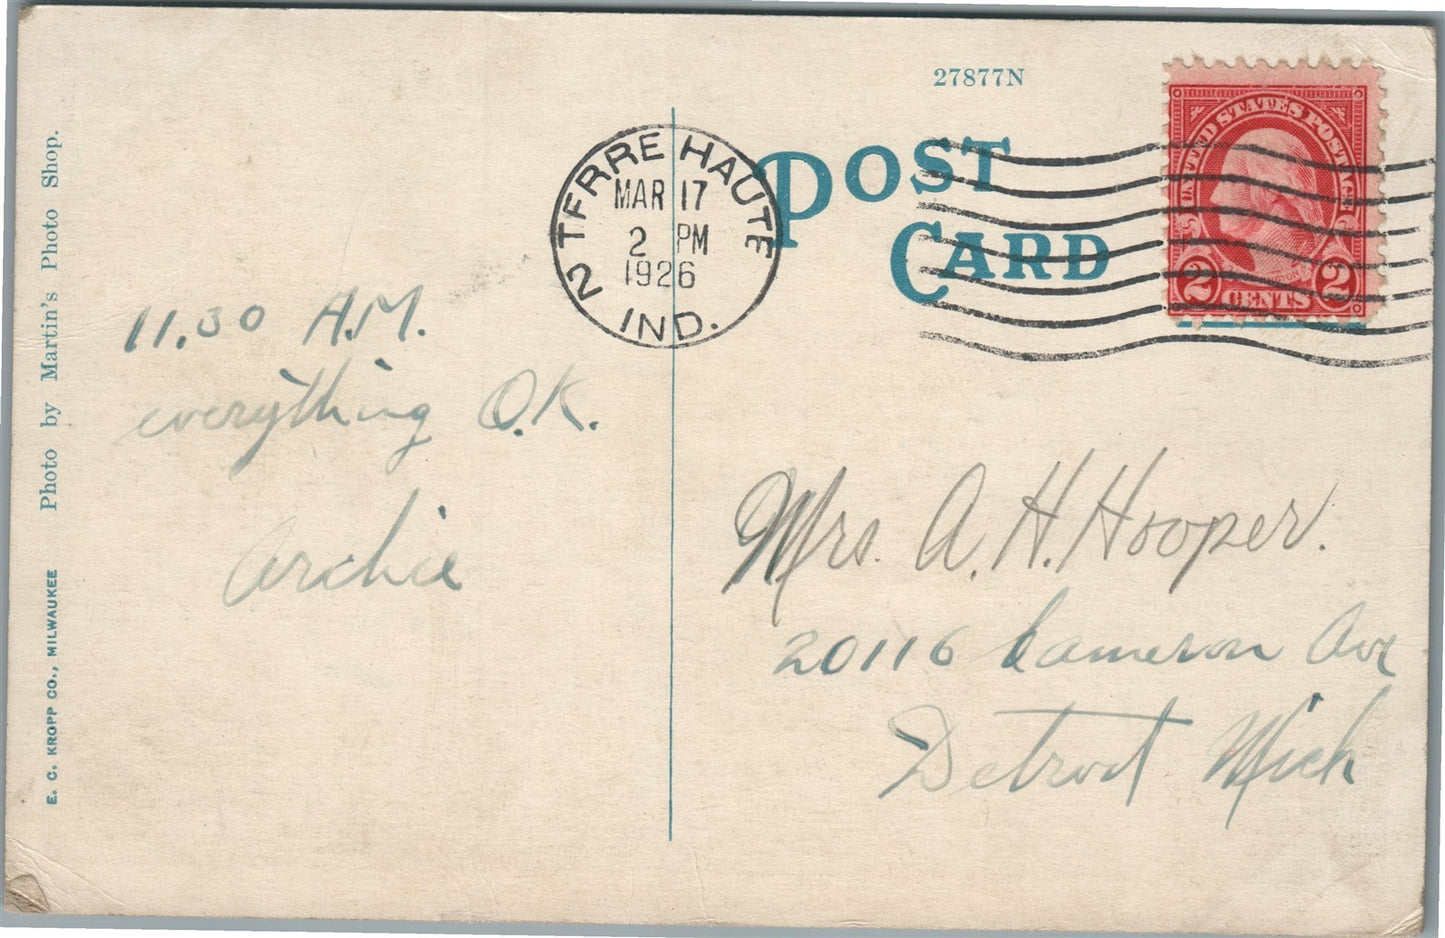 27877N
POST
CARD
TERRE HAUTE
MAR 17
2 PM
1926
2 IND.
UNITED STATES POSTAGE
2 CENTS 2
11.30 A.M.
everything O.K.
Archie
Mrs. A. H. Hooper.
20116 Cameron Ave
Detroit Mich
Photo by Martin's Photo Shop.
E. C. KROPP CO., MILWAUKEE